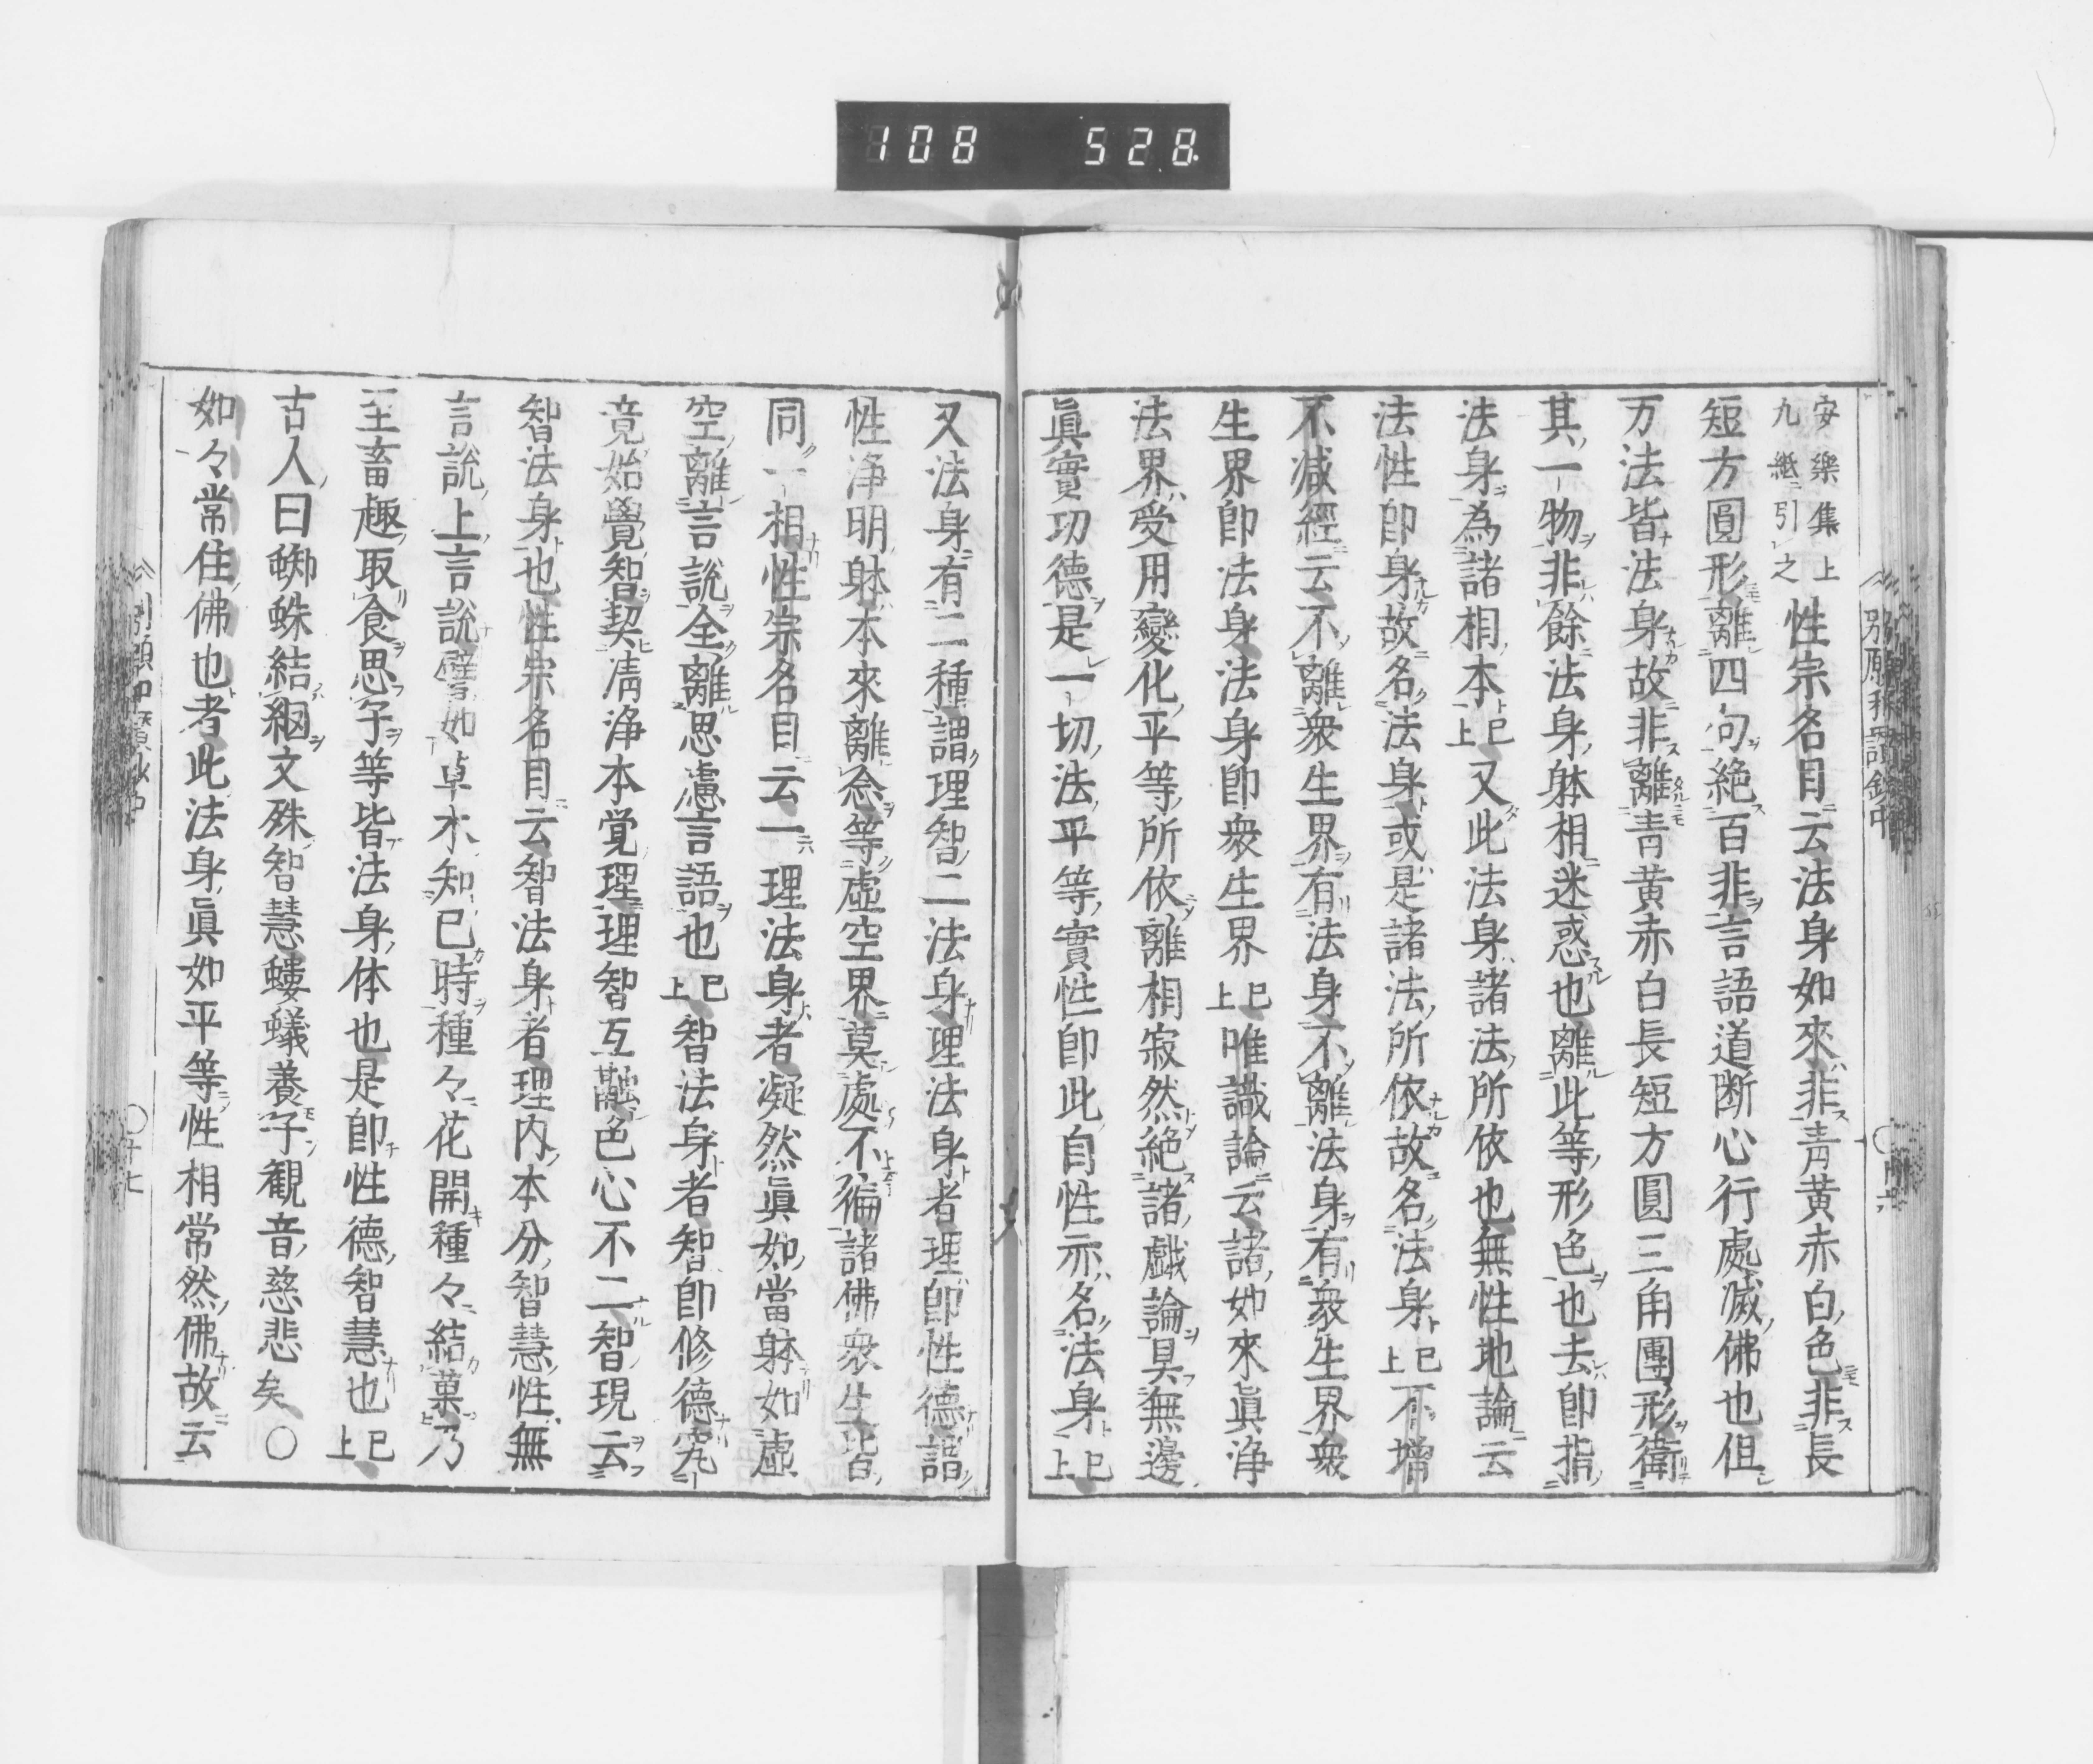 108 528
安樂集上
九紙引之
性宗名目云法身如來非靑黃赤白色非長
短方圓形離四句絶百非言語道断心行處滅佛也但
万法皆法身故非離靑黃赤白長短方圓三角團形衞
其一物非餘法身躰相迷惑也離此等形色也去卽指
法身為諸相本已上又此法身諸法所依也無性地論云
法性卽身故名法身或是諸法所依故名法身已上不增
不减經云不離衆生界有法身不離法身有衆生界衆
生界卽法身法身卽衆生界已上唯識論云諸如來眞淨
法界受用變化平等所依離相寂然絶諸戯論具無邊
眞實功德是一切法平等實性卽此自性亦名法身已上
又法身有二種謂理智二法身理法身者理卽性德謂
性淨明躰本來離念等虛空界莫處不徧諸佛衆生皆
同一相性宗名目云一理法身者凝然眞如當躰如虛
空離言說全離思慮言語也已上智法身者智卽修德究
竟始覺智契淸淨本覚理理智互融色心不二智現云
智法身也性宗名目云智法身者理内本分智慧性無
言說上言說譬如草木知已時種々花開種々結菓乃
至畜趣取食思子等皆法身体也是卽性德智慧也已上
古人曰蜘蛛結網文殊智慧螻蟻養子観音慈悲矣〇
如々常住佛也者此法身眞如平等性相常然佛故云